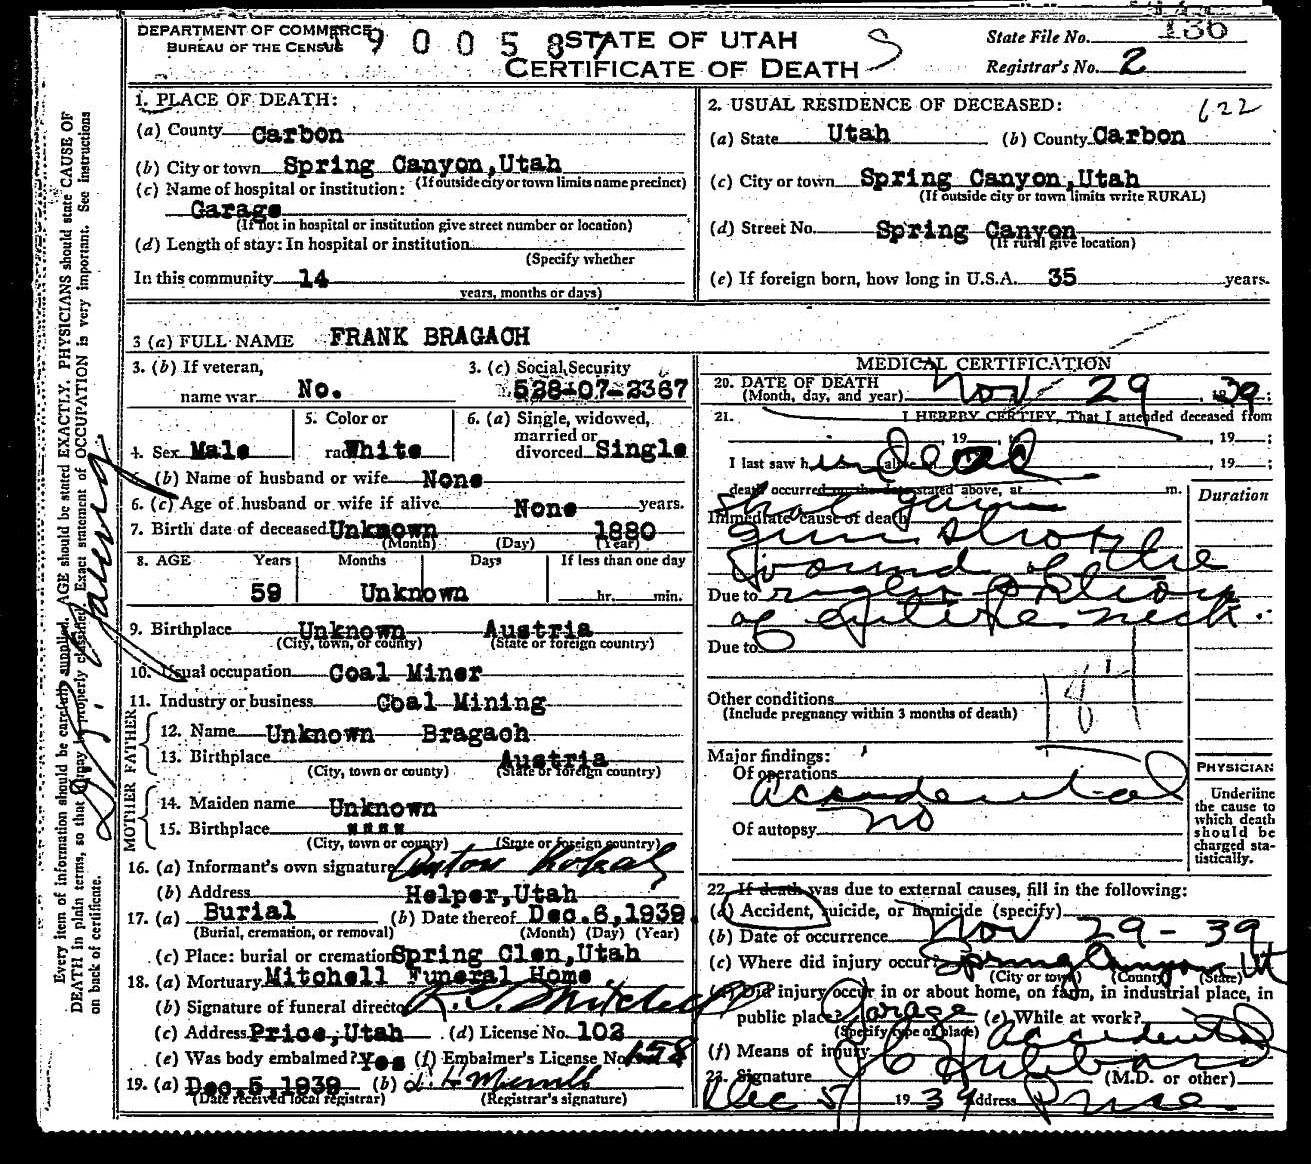 DEPARTMENT OF COMMERCE
BUREAU OF THE CENSUS
9 0 0 5 8 7
STATE OF UTAH
CERTIFICATE OF DEATH
State File No. 136
Registrar's No. 2
1. PLACE OF DEATH:
(a) County Carbon
(b) City or town Spring Canyon, Utah
(If outside city or town limits name precinct)
(c) Name of hospital or institution:
Garage
(If not in hospital or institution give street number or location)
(d) Length of stay: In hospital or institution
(Specify whether
In this community 14
years, months or days)
2. USUAL RESIDENCE OF DECEASED:
622
(a) State Utah (b) County Carbon
(c) City or town Spring Canyon, Utah
(If outside city or town limits write RURAL)
(d) Street No. Spring Canyon
(If rural give location)
(e) If foreign born, how long in U.S.A. 35 years.
3 (a) FULL NAME FRANK BRAGACH
3. (b) If veteran, name war No.
3. (c) Social Security 528-07-2367
4. Sex Male
5. Color or race White
6. (a) Single, widowed, married or divorced Single
(b) Name of husband or wife None
6. (c) Age of husband or wife if alive None years.
7. Birth date of deceased Unknown 1880
(Month) (Day) (Year)
8. AGE Years Months Days If less than one day
59 Unknown hr. min.
9. Birthplace Unknown Austria
(City, town, or county) (State or foreign country)
10. Usual occupation Coal Miner
11. Industry or business Coal Mining
FATHER
12. Name Unknown Bragach
13. Birthplace Austria
(City, town or county) (State or foreign country)
MOTHER
14. Maiden name Unknown
15. Birthplace """"
(City, town or county) (State or foreign country)
16. (a) Informant's own signature Anton
(b) Address Helper, Utah
17. (a) Burial (b) Date thereof Dec. 6, 1939.
(Burial, cremation, or removal) (Month) (Day) (Year)
(c) Place: burial or cremation Spring Glen, Utah
18. (a) Mortuary Mitchell Funeral Home
(b) Signature of funeral director Mitchell
(c) Address Price, Utah (d) License No. 102
(e) Was body embalmed? Yes (f) Embalmer's License No. 158
19. (a) Dec. 5, 1939 (b)
(Date received local registrar) (Registrar's signature)
MEDICAL CERTIFICATION
20. DATE OF DEATH
(Month, day, and year) Nov 29, 1939;
21. I HEREBY CERTIFY, That I attended deceased from
, 19 , to , 19 ;
I last saw him alive dead , 19 ;
death occurred on the date stated above, at m.
Duration
Immediate cause of death shot gun
gun shot
wound of the
Due to right portion
of entire neck.
Due to
184
Other conditions
(Include pregnancy within 3 months of death)
Major findings:
Of operations
Accidental
Of autopsy no
PHYSICIAN
Underline the cause to which death should be charged statistically.
22. If death was due to external causes, fill in the following:
(a) Accident, suicide, or homicide (specify)
(b) Date of occurrence Nov 29-39
(c) Where did injury occur? Spring Canyon Ut
(City or town) (County) (State)
(d) Did injury occur in or about home, on farm, in industrial place, in
public place? Garage (e) While at work?
(Specify type of place)
(f) Means of injury Accidental
23. Signature J C Hubbard (M.D. or other)
Dec 5 1939 Address Price
Every item of information should be carefully supplied. AGE should be stated EXACTLY. PHYSICIANS should state CAUSE OF
DEATH in plain terms, so that it may be properly classified. Exact statement of OCCUPATION is very important. See instructions
on back of certificate.